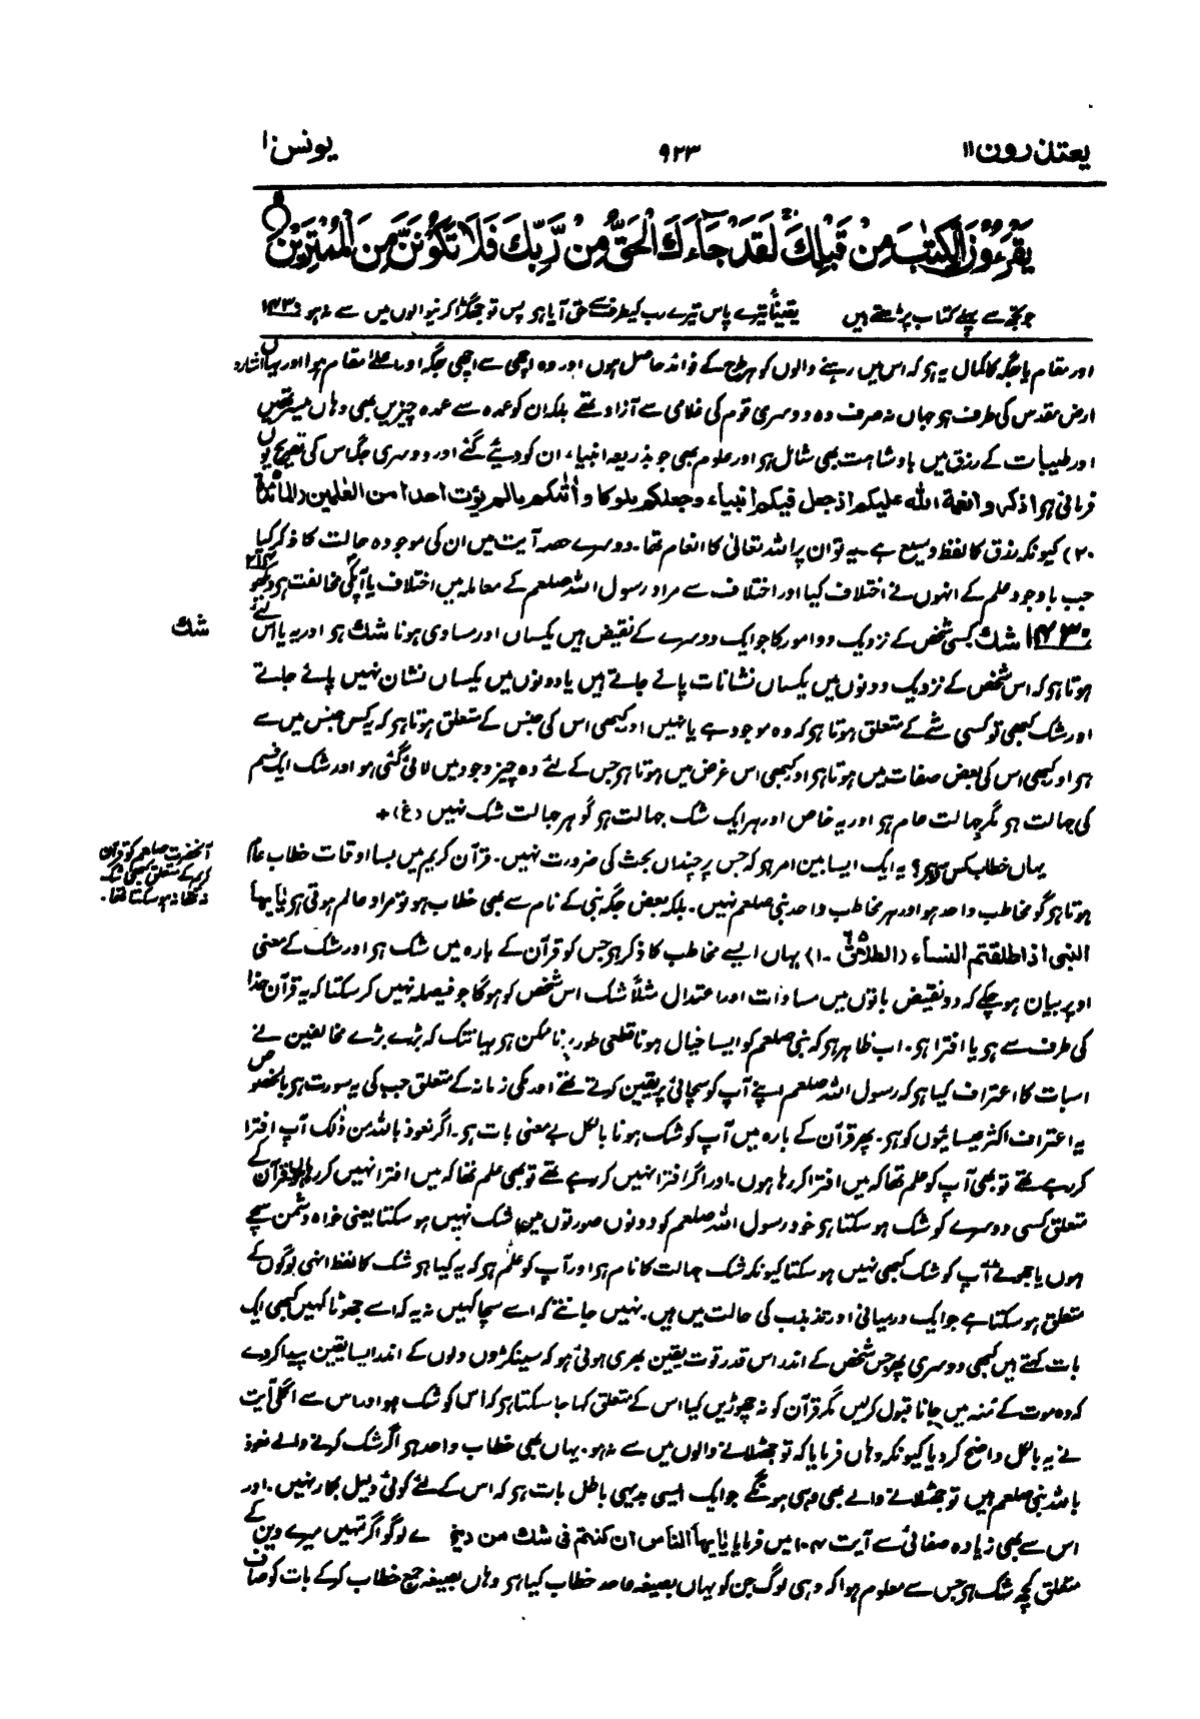 یعتذرون ۱۱
۹۲۳
یونس ۱۰
یَقْرَءُوْنَ الْكِتٰبَ مِنْ قَبْلِكَ لَقَدْ جَآءَكَ الْحَقُّ مِنْ رَّبِّكَ فَلَا تَكُوْنَنَّ مِنَ الْمُمْتَرِیْنَ
جو تجھ سے پہلے کتاب پڑھتے ہیں یقیناً تیرے پاس تیرے رب کیطرف سے حق آیا ہو پس تو جھگڑا کرنیوالوں میں سے نہ ہو ۱۴۳۰
اور مقام یا جگہ کا کمال یہ ہو کہ اس میں رہنے والوں کو ہر طرح کے فوائد حاصل ہوں اور وہ اچھی سے اچھی جگہ اور اعلےٰ مقام ہوا اور یہاں اشارہ
ارض مقدس کی طرف ہو جہاں نہ صرف وہ دوسری قوم کی غلامی سے آزاد تھے بلکہ ان کو عمدہ سے عمدہ چیزیں بھی وہاں میسر تھیں
اور طیبات کے رزق میں بادشاہت بھی شامل ہو اور علوم بھی جو بذریعہ انبیاء ان کو دیئے گئے اور دوسری جگہ اس کی تصریح یوں
فرمائی ہو اذکروا نعمة الله علیکم اذ جعل فیکم انبیاء وجعلکم ملوکا و اٰتٰکم مالم یؤت احدا من العٰلمین (المائدة
۲۰) کیونکہ رزق کا لفظ وسیع ہے۔ یہ تو ان پر اللہ تعالیٰ کا انعام تھا۔ دوسرے حصہ آیت میں ان کی موجودہ حالت کا ذکر کیا
جب باوجود علم کے انہوں نے اختلاف کیا اور اختلاف سے مراد رسول اللہ صلعم کے معاملہ میں اختلاف یا آپکی مخالفت ہی دیکھو
۱۴۳۰ شك کسی شخص کے نزدیک دو امور کا جو ایک دوسرے کے نقیض ہیں یکساں اور مساوی ہونا شك ہو اور یہ یا اس لئے
شك
ہوتا ہو کہ اس شخص کے نزدیک دونوں میں یکساں نشانات پائے جاتے ہیں یا دونوں میں یکساں نشان نہیں پائے جاتے
اور شک کبھی تو کسی شے کے متعلق ہوتا ہو کہ وہ موجود ہے یا نہیں اور کبھی اس کی جنس کے متعلق ہوتا ہو کہ یہ کس جنس میں سے
ہو اور کبھی اس کی بعض صفات میں ہوتا ہو اور کبھی اس غرض میں ہوتا ہو جس کے لئے وہ چیز وجود میں لائی گئی ہو اور شک ایک قسم
کی جہالت ہو مگر جہالت عام ہو اور یہ خاص اور ہر ایک شک جہالت ہو گو ہر جہالت شک نہیں (غ) +
یہاں خطاب کس سے ہو؟ یہ ایک ایسا بین امر ہو کہ جس پر چنداں بحث کی ضرورت نہیں۔ قرآن کریم میں بسا اوقات خطاب عام
آنحضرت صلعم کو قرآن
کریم کے متعلق کبھی شک
نہ تھا نہ ہو سکتا تھا۔
ہوتا ہو گو مخاطب واحد ہو اور ہر مخاطب واحد نبی صلعم نہیں۔ بلکہ بعض جگہ نبی کے نام سے بھی خطاب ہو تو مراد عالم ہوتی ہو یٰایہا
النبی اذا طلقتم النساء (الطلاق ۶۵۔۱) یہاں ایسے مخاطب کا ذکر ہو جس کو قرآن کے بارہ میں شک ہو اور شک کے معنی
اوپر بیان ہو چکے کہ دو نقیض باتوں میں مساوات اور اعتدال مثلاً شک اس شخص کو ہوگا جو فیصلہ نہیں کر سکتا کہ یہ قرآن خدا
کی طرف سے ہو یا افترا ہو۔ اب ظاہر ہو کہ نبی صلعم کو ایسا خیال ہونا قطعی طور پر ناممکن ہو یہانتک کہ بڑے بڑے مخالفین نے
اسبات کا اعتراف کیا ہو کہ رسول اللہ صلعم اپنے آپ کو سچائی پر یقین کرتے تھے اور مکی زمانہ کے متعلق جب کی یہ سورت ہو بالخصوص
یہ اعتراف اکثر عیسائیوں کو ہو۔ پھر قرآن کے بارہ میں آپ کو شک ہونا بالکل بے معنی بات ہو۔ اگر نعوذ باللہ من ذٰلک آپ افترا
کر رہے تھے تو بھی آپ کو علم تھا کہ میں افترا کر رہا ہوں۔ اور اگر افترا نہیں کر رہے تھے تو بھی علم تھا کہ میں افترا نہیں کر رہا قرآن کے
متعلق کسی دوسرے کو شک ہو سکتا ہو خود رسول اللہ صلعم کو دونوں صورتوں میں شک نہیں ہو سکتا یعنی خواہ دشمن سچے
ہوں یا جھوٹے آپ کو شک کبھی نہیں ہو سکتا کیونکہ شک جہالت کا نام ہو اور آپ کو علم ہو کہ یہ کیا ہو شک کا لفظ انہی لوگوں کے
متعلق ہو سکتا ہے جو ایک درمیانی اور تذبذب کی حالت میں ہیں۔ نہیں جانتے کہ اسے سچا کہیں نہ یہ کہ اسے جھوٹا کہیں کبھی ایک
بات کہتے ہیں کبھی دوسری پھر جس شخص کے اندر اس قدر قوت یقین بھری ہوئی ہو کہ سینکڑوں دلوں کے اندر ایسا یقین پیدا کردے
کہ وہ موت کے منہ میں جانا قبول کریں مگر قرآن کو نہ چھوڑیں کیا اس کے متعلق کہا جا سکتا ہو کہ اس کو شک ہو اور اس سے اگلی آیت
نے یہ بالکل واضح کر دیا کیونکہ وہاں فرمایا کہ تو جھٹلانے والوں میں سے نہ ہو۔ یہاں بھی خطاب واحد ہو اگر شک کرنے والے نعوذ
باللہ نبی صلعم ہیں تو جھٹلانے والے بھی وہی ہونگے جو ایک ایسی بدیہی باطل بات ہو کہ اس کے لئے کوئی دلیل بکار نہیں۔ اور
اس سے بھی زیادہ صفائی سے آیت ۱۰۴ میں فرمایا یٰایہا الناس ان کنتم فی شك من دینی اے لوگو اگر تمہیں میرے دین کے
متعلق کچھ شک ہو جس سے معلوم ہوا کہ وہی لوگ جن کو یہاں بصیغہ واحد خطاب کیا ہو وہاں بصیغہ جمع خطاب کرکے بات کو صاف